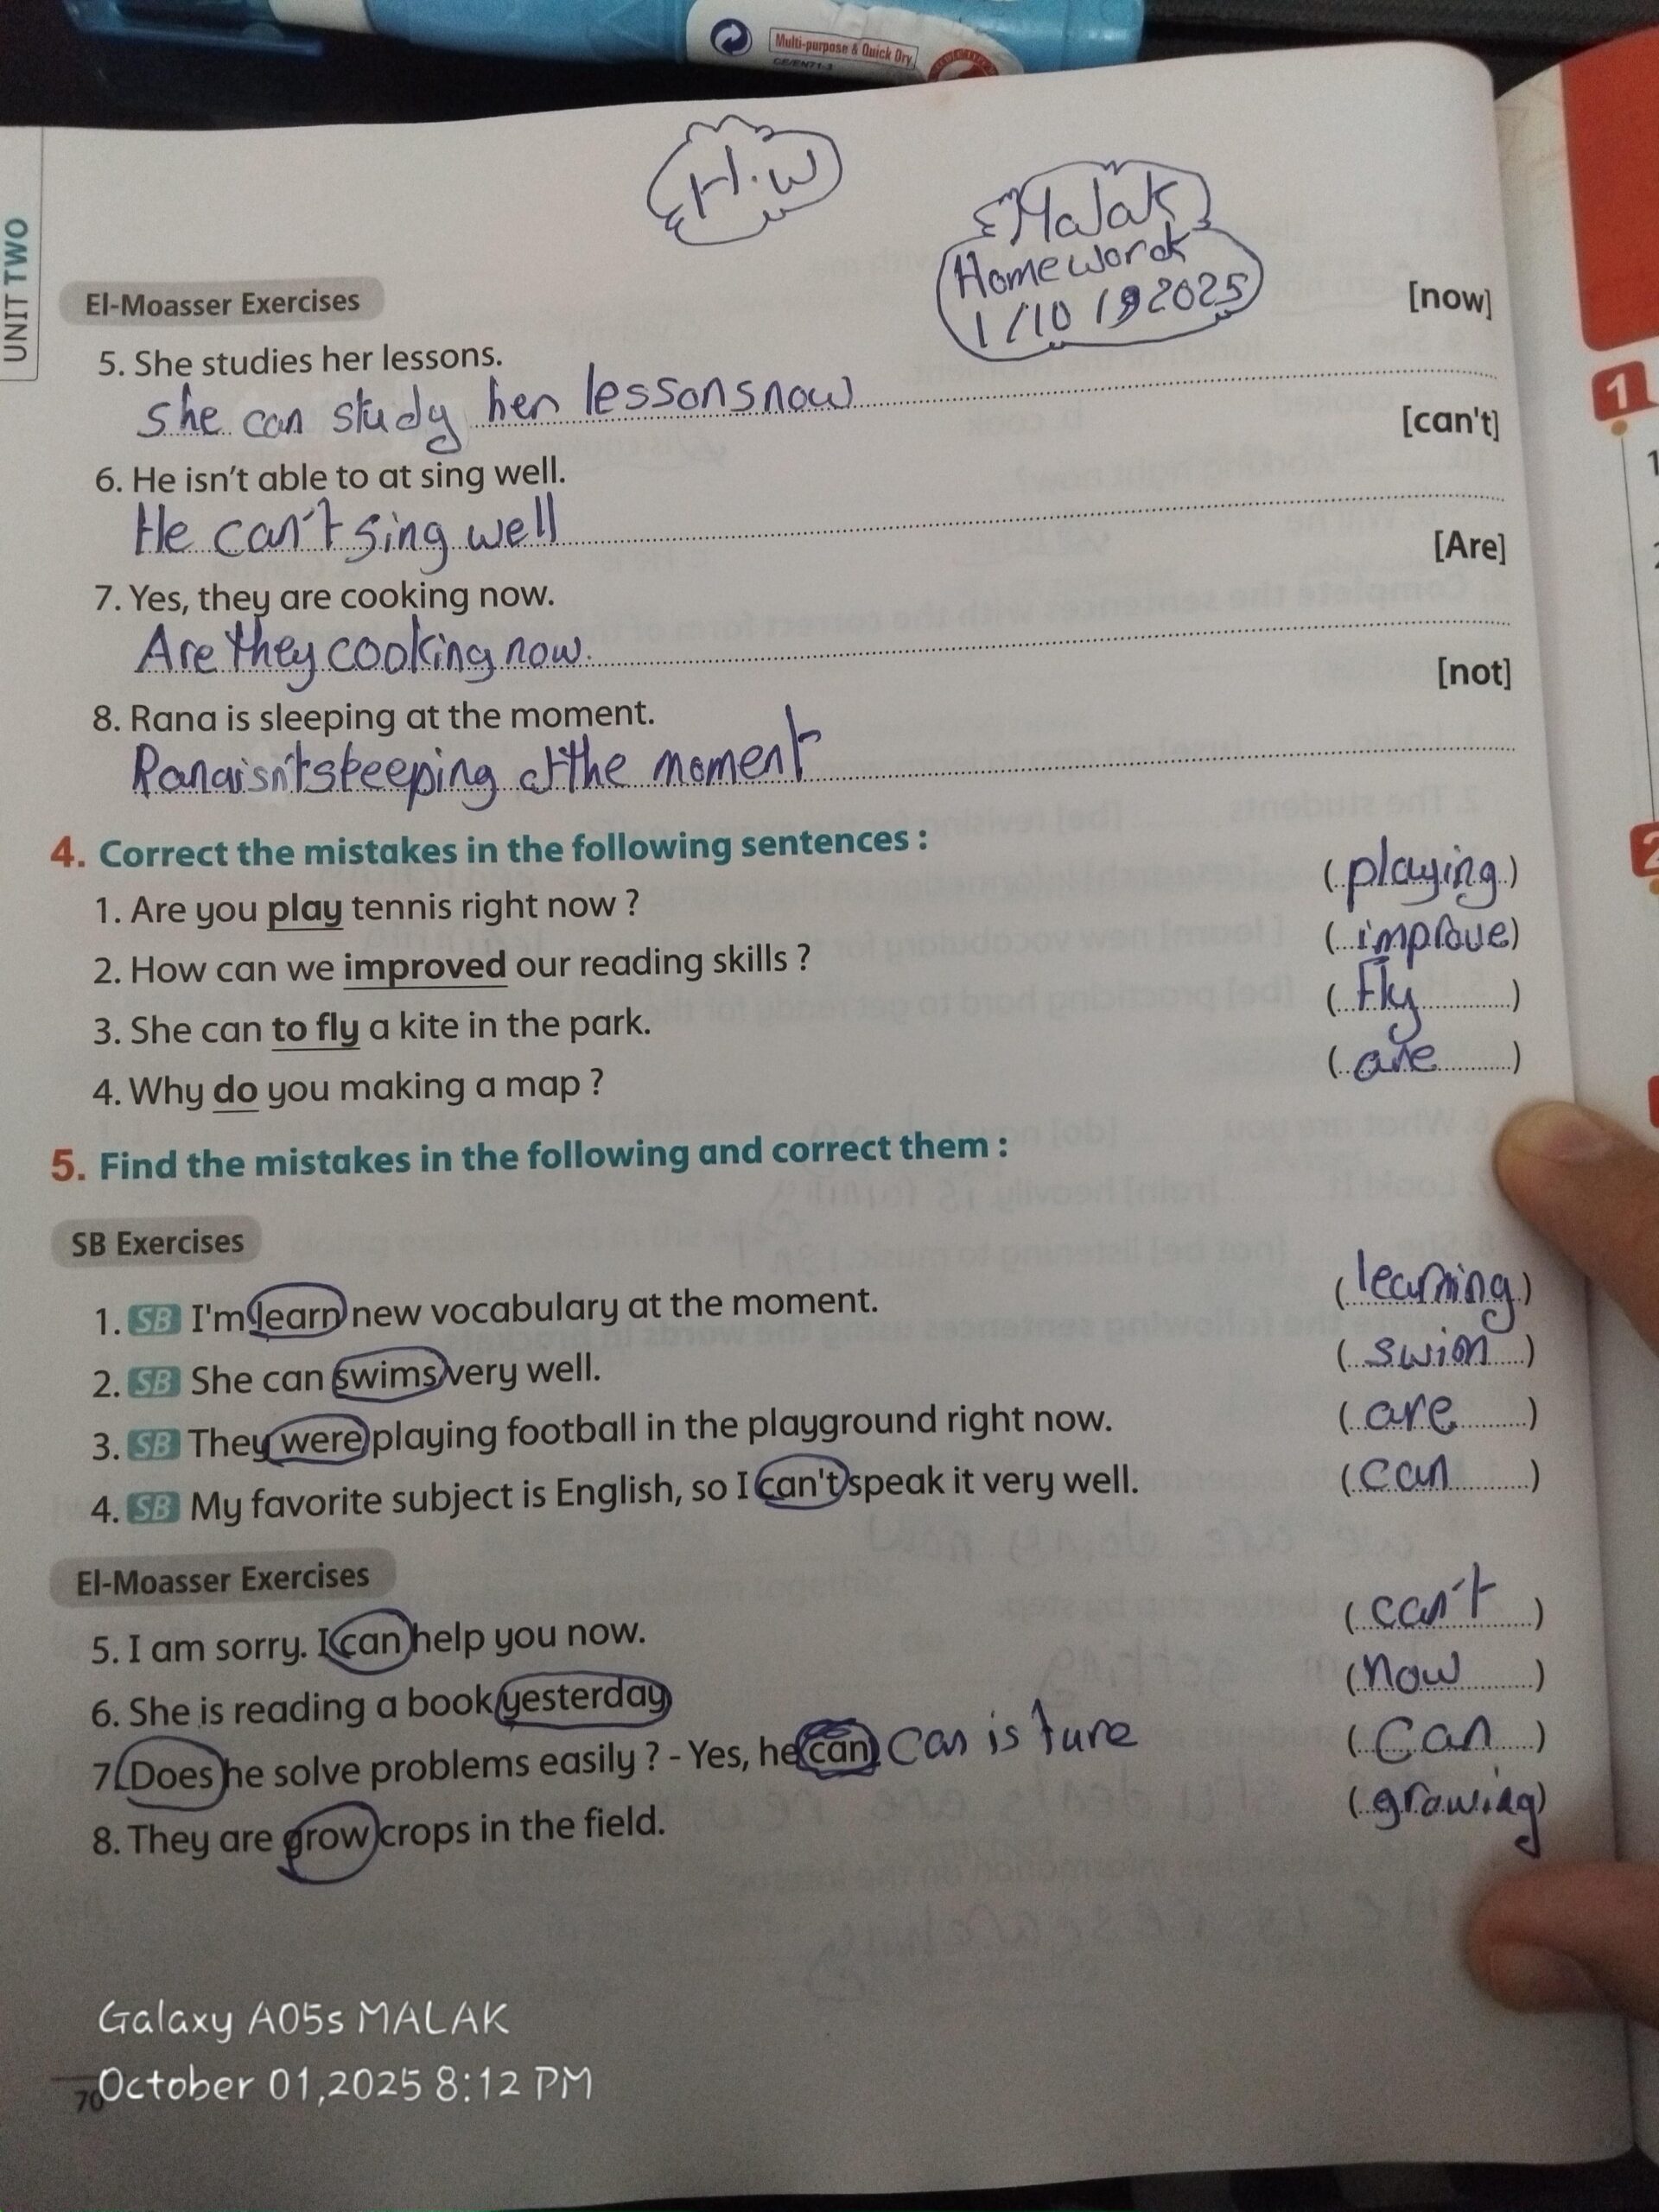 Multi-purpose & Quick Dry
CE/EN71-3
H.W
Malak
Homeworok
1/10/2025
UNIT TWO
El-Moasser Exercises
5. She studies her lessons. [now]
she can study her lessons now
6. He isn't able to at sing well. [can't]
He can't sing well
7. Yes, they are cooking now. [Are]
Are they cooking now.
8. Rana is sleeping at the moment. [not]
Rana isn't skeeping at the moment
4. Correct the mistakes in the following sentences :
1. Are you play tennis right now ? (playing)
2. How can we improved our reading skills ? (improve)
3. She can to fly a kite in the park. (Fly)
4. Why do you making a map ? (are)
5. Find the mistakes in the following and correct them :
SB Exercises
1. SB I'm learn new vocabulary at the moment. (learning)
2. SB She can swims very well. (swim)
3. SB They were playing football in the playground right now. (are)
4. SB My favorite subject is English, so I can't speak it very well. (can)
El-Moasser Exercises
5. I am sorry. I can help you now. (can't)
6. She is reading a book yesterday (now)
7. Does he solve problems easily ? - Yes, he can. Can is ture (Can)
8. They are grow crops in the field. (growing)
Galaxy A05s MALAK
October 01,2025 8:12 PM
70
1
2